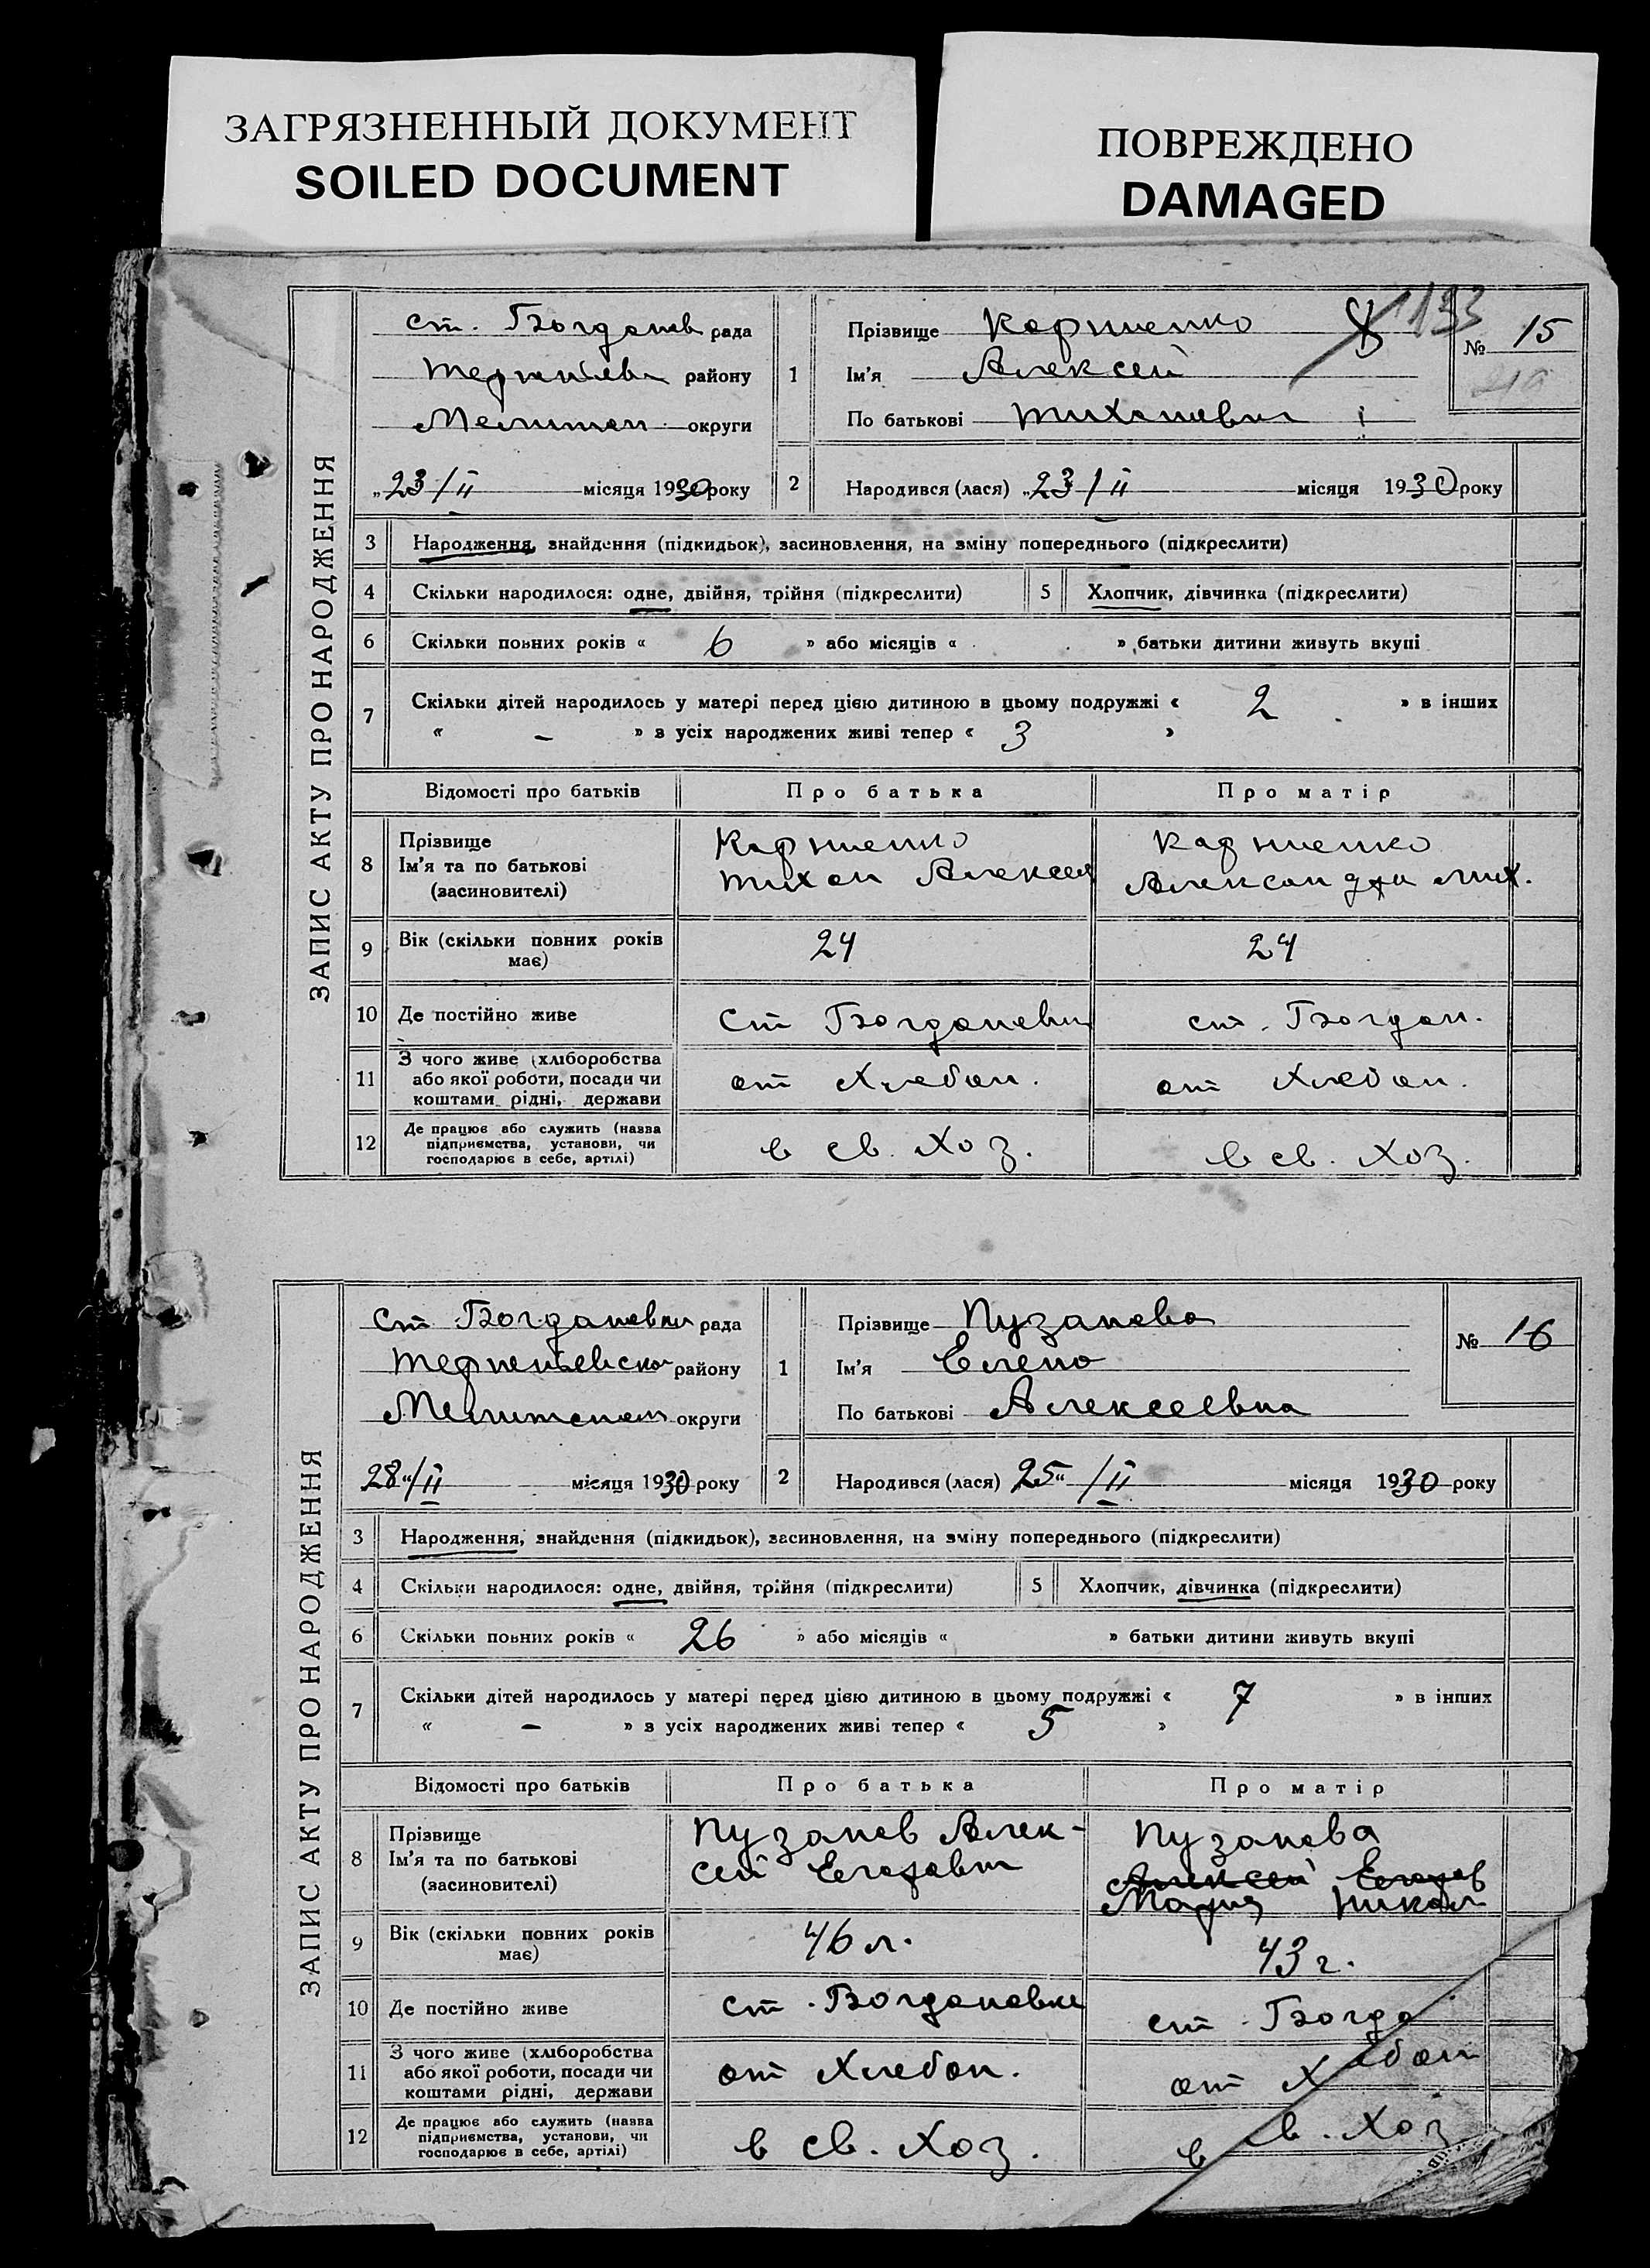 ЗАГРЯЗНЕННЫЙ ДОКУМЕНТ
SOILED DOCUMENT
ПОВРЕЖДЕНО
DAMAGED
ЗАПИС АКТУ ПРО НАРОДЖЕННЯ
ст. Богданов рада
району
Мелитоп. округи
„23/II місяця 1930 року
1
Прізвище Корниенко
Ім'я Алексей
По батькові Тихонович
1193
№ 15
2
Народився (лася) „23/II місяця 1930 року
3 Народження, знайдення (підкидьок), засиновлення, на зміну попереднього (підкреслити)
4 Скільки народилося: одне, двійня, трійня (підкреслити) 5 Хлопчик, дівчинка (підкреслити)
6 Скільки повних років « 6 » або місяців « » батьки дитини живуть вкупі
7 Скільки дітей народилось у матері перед цією дитиною в цьому подружжі « 2 » в інших
« – » з усіх народжених живі тепер « 3 »
Відомості про батьків Про батька Про матір
8 Прізвище
Ім'я та по батькові
(засиновителі)
Корниенко
Тихон Алексеев
Корниенко
Александра Мих.
9 Вік (скільки повних років
має)
24 24
10 Де постійно живе ст Богдановки ст. Богдан.
11 З чого живе (хліборобства
або якої роботи, посади чи
коштами рідні, держави
от хлебоп. от хлебоп.
12 Де працює або служить (назва
підприємства, установи, чи
господарює в себе, артілі)
в св. хоз. в св. хоз.
ЗАПИС АКТУ ПРО НАРОДЖЕННЯ
ст Богдановки рада
Терпеньевско району
округи
28"/II місяця 1930 року
1
Прізвище Пузанова
Ім'я Елена
По батькові Алексеевна
№ 16
2
Народився (лася) 25"/II місяця 1930 року
3 Народження, знайдення (підкидьок), засиновлення, на зміну попереднього (підкреслити)
4 Скільки народилося: одне, двійня, трійня (підкреслити) 5 Хлопчик, дівчинка (підкреслити)
6 Скільки повних років « 26 » або місяців « » батьки дитини живуть вкупі
7 Скільки дітей народилось у матері перед цією дитиною в цьому подружжі « 7 » в інших
« – » з усіх народжених живі тепер « 5 »
Відомості про батьків Про батька Про матір
8 Прізвище
Ім'я та по батькові
(засиновителі)
Пузанов Алек-
сей Егорович
Пузанова
Алексей Егоров
Мария Никол
9 Вік (скільки повних років
має)
46 л. 43 г.
10 Де постійно живе ст. Богдановке ст. Богда
11 З чого живе (хліборобства
або якої роботи, посади чи
коштами рідні, держави
от хлебоп. от хлебоп
12 Де працює або служить (назва
підприємства, установи, чи
господарює в себе, артілі)
в св. хоз. в св. хоз